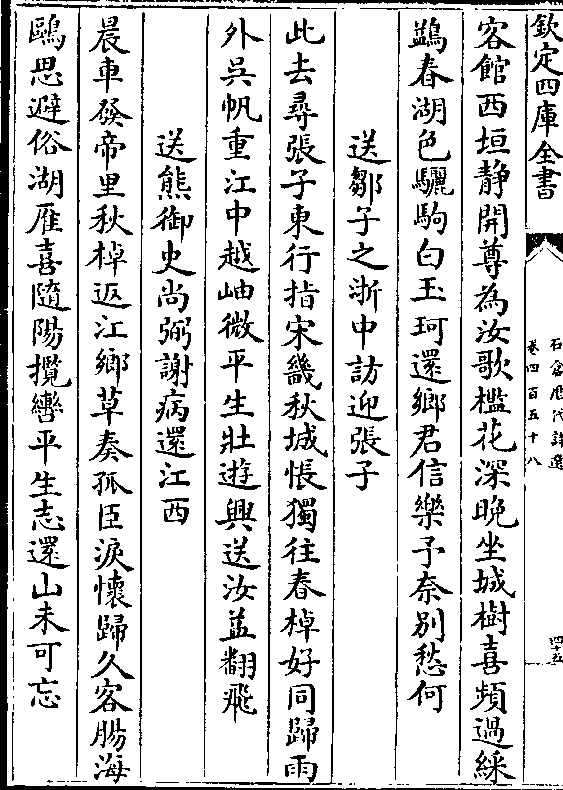 欽定四庫全書
石倉歷代詩選
卷四百五十八
四十五
客館西垣靜開尊為汝歌檻花深晚坐城樹喜頻過綵
鷁春湖色驪駒白玉珂還鄉君信樂予奈别愁何
送鄒子之浙中訪迎張子
此去尋張子東行指宋畿秋城悵獨往春棹好同歸雨
外吳帆重江中越岫微平生壯遊興送汝益翻飛
送熊御史尚弼謝病還江西
晨車發帝里秋棹返江鄉草奏孤臣淚懷歸久客腸海
鷗思避俗湖雁喜隨陽攬轡平生志還山未可忘